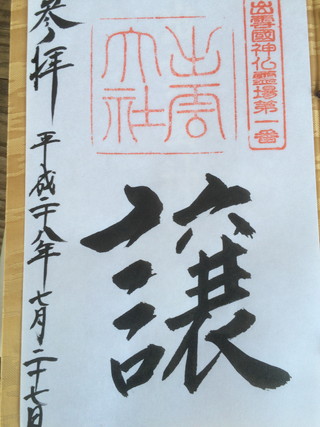 出雲國神仏霊場第一番
出雲大社
譲
参拝
平成二十八年七月二十七日